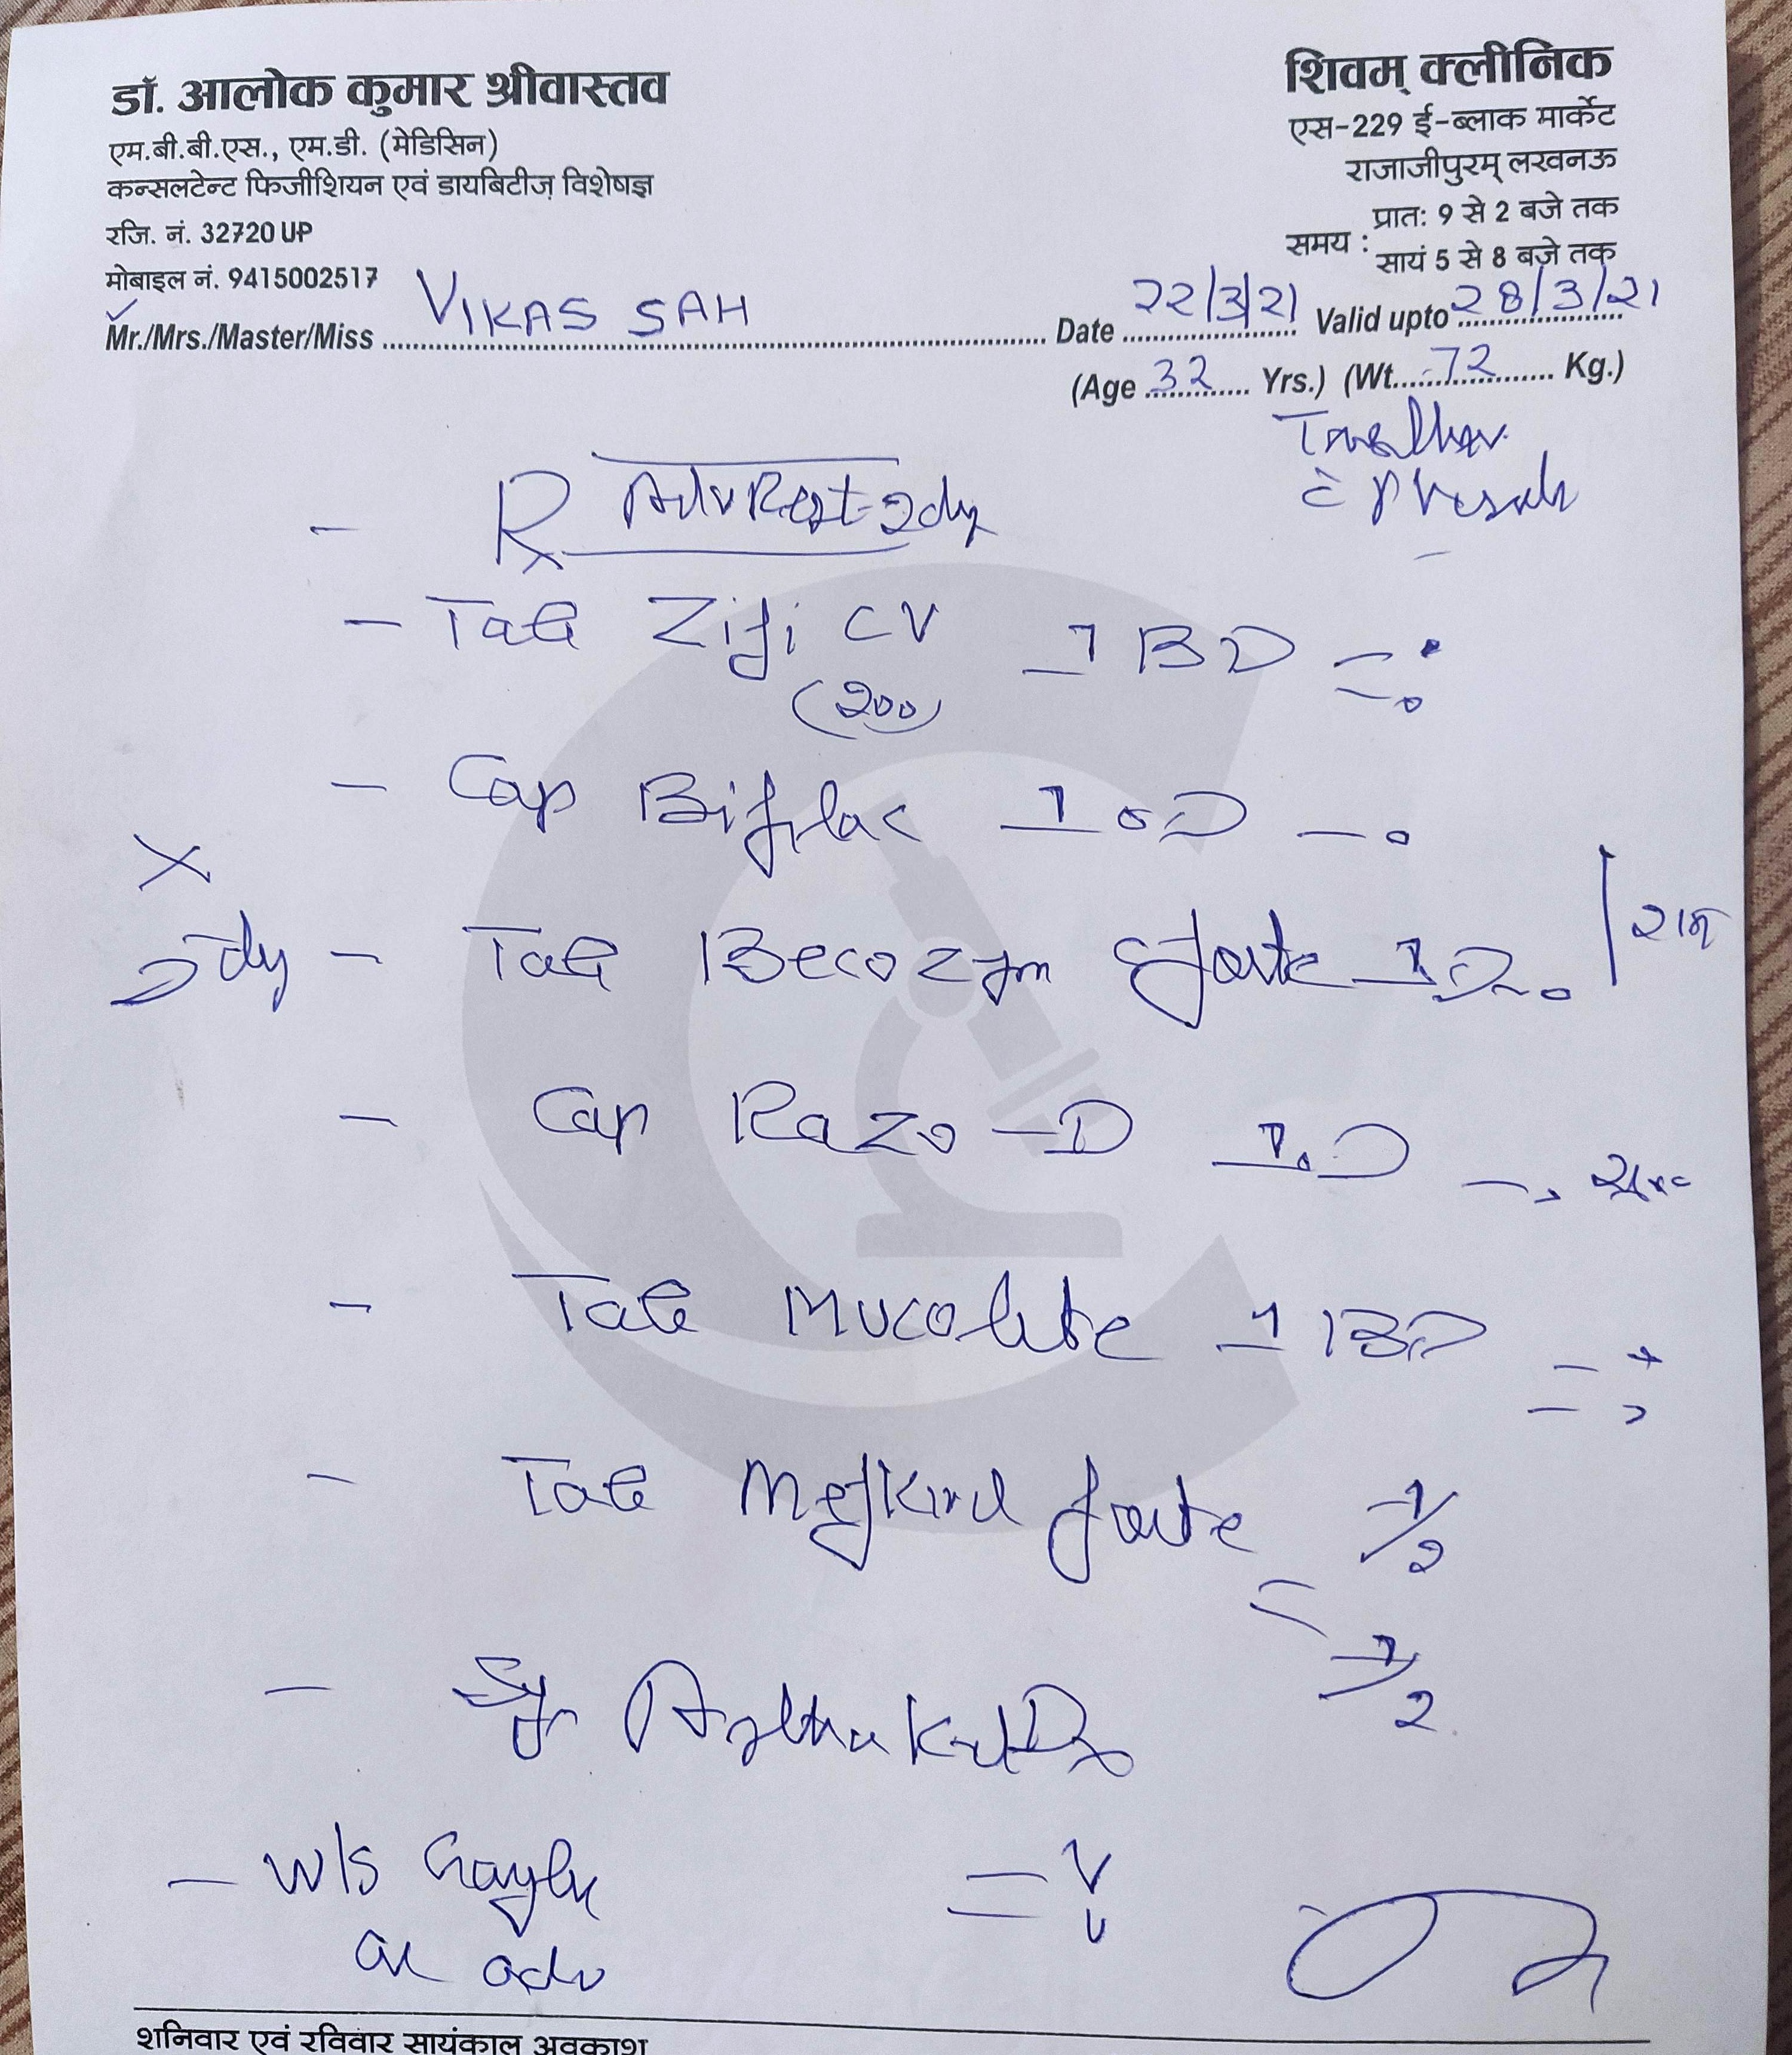 डॉ. आलोक कुमार श्रीवास्तव
एम.बी.बी.एस., एम.डी. (मेडिसिन)
कन्सलटेन्ट फिजीशियन एवं डायबिटीज़ विशेषज्ञ
रजि. नं. 32720 UP
मोबाइल नं. 9415002517
शिवम् क्लीनिक
एस-229 ई-ब्लाक मार्केट
राजाजीपुरम् लखनऊ
समय : प्रातः 9 से 2 बजे तक
सायं 5 से 8 बजे तक
Mr./Mrs./Master/Miss VIKAS SAH Date 22/3/21 Valid upto 28/3/21
(Age 32 Yrs.) (Wt. 72 Kg.)
Rx Adv Rest 2dy
- Tab Zifi CV 1 BD
(200)
- Cap Bifilac 1 OD
X
5dy - Tab Becozym forte 1 OD
- Cap Razo-D 1 OD
- Tab Mucolite 1 BD
- Tab Mefkind forte 1/2
1/2
- Syr
- W/S Gargle
as adv
शनिवार एवं रविवार सायंकाल अवकाश